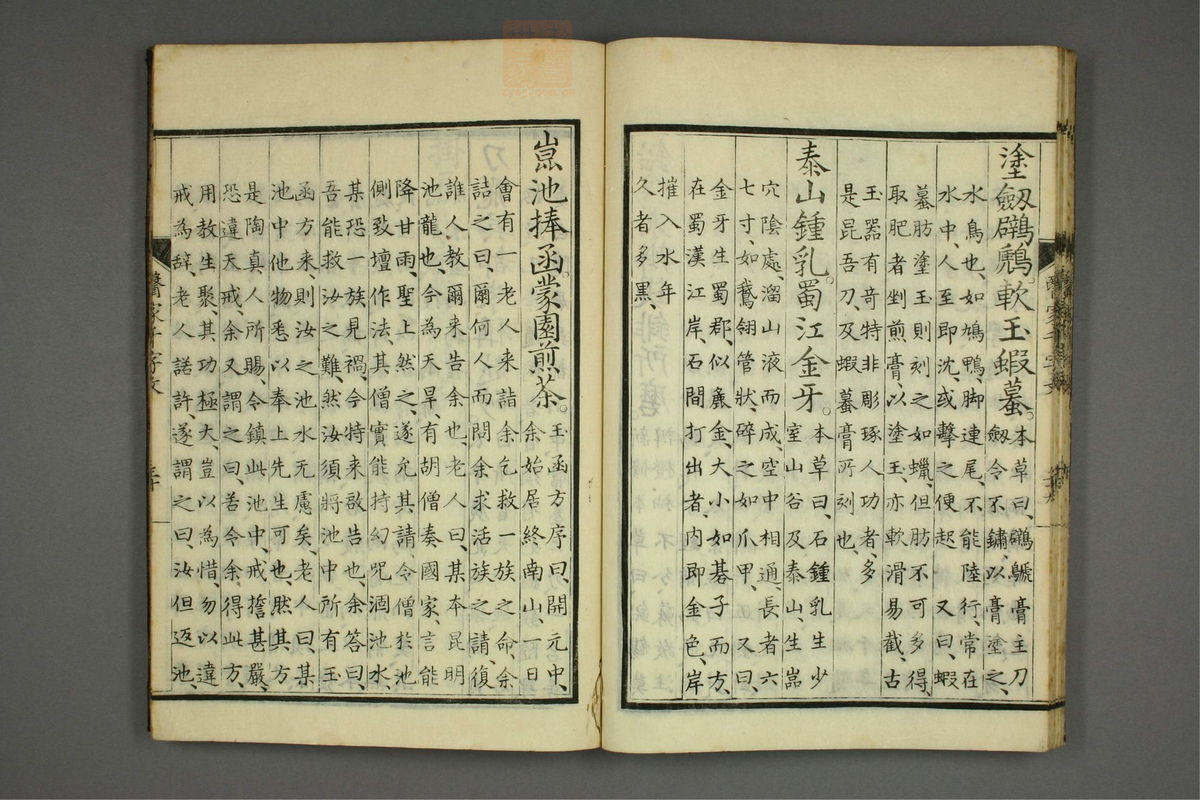 塗劔鸊鷉。軟玉蝦蟇。本草曰、鸊鷉膏主刀
劔令不鏽、以膏塗之、
水鳥也、如鳩鴨、脚連尾、不能陸行、常在
水中、人至即沈、或擊之便起、又曰、蝦
蟇肪塗玉則刻之如蠟、但肪不可多得、
取肥者剉煎膏、以塗玉、亦軟滑易截、古
玉器有奇特非彫琢人功者、多
是昆吾刀、及蝦蟇膏所刻也、
泰山鍾乳。蜀江金牙。本草曰、石鍾乳生少
室山谷及泰山、生嵓
穴陰處、溜山液而成、空中相通、長者六
七寸、如鵝翎管狀、碎之如爪甲、又曰、
金牙生蜀郡、似麁金、大小如碁子而方、
在蜀漢江岸、石間打出者、内即金色、岸
摧入水年
久者多黑、
崑池捧函。蒙園煎茶。玉函方序曰、開元中、
余始居終南山、一日
會有一老人来詣余、乞救一族之命、余
詰之曰、爾何人、而問余求活族之請、復
誰人、教爾来告余也、老人曰、某本昆明
池龍也、今為天旱、有胡僧奏國家、言能
降甘雨、聖上然之、遂允其請、令僧於池
側致壇作法、其僧實能持幻咒涸池水、
某恐一族見禍、今特来啟告也、余答曰、
吾能救汝之難、然汝須將池中所有玉
函方来、則汝之池水无慮矣、老人曰、某
池中他物悉以奉上先生可也、然其方
是陶真人所賜、令鎮此池中、戒誓甚嚴、
恐違天戒、余又謂之曰、苦令余、得此方、
用教生聚、其功極大、豈以為惜、勿以違
戒為辭、老人諾許、遂謂之曰、汝但返池、
醫家千字文